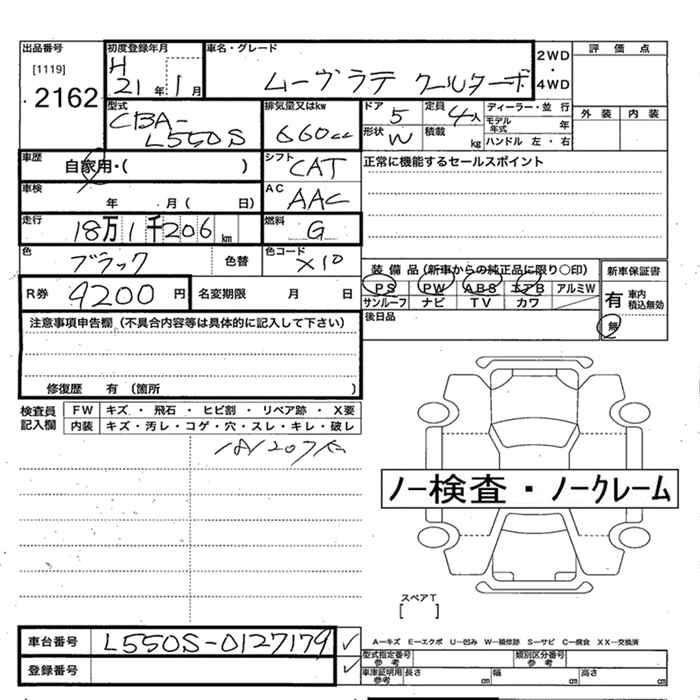 出品番号
[1119]
2162
初度登録年月
H
21 年 1 月
車名・グレード
ムーヴラテ クールターボ
2WD
・
4WD
評価点
外装 内装
型式
CBA-
L550S
排気量又はkw
660cc
ドア 5
定員 4人
形状 W
積載 kg
ディーラー・並行
モデル年式 年
ハンドル 左・右
車歴
自家用・( )
シフト
CAT
正常に機能するセールスポイント
車検
年 月( 日)
AC
AAC
走行
18万1千206km
燃料
G
色
ブラック
色替
色コード
X10
装備品(新車からの純正品に限り○印)
PS PW ABS エアB アルミW
サンルーフ ナビ TV カワ
後日品
新車保証書
有 車内積込無効
無
R券 9200 円
名変期限 月 日
注意事項申告欄(不具合内容等は具体的に記入して下さい)
修復歴 有(箇所 )
検査員記入欄
FW キズ・飛石・ヒビ割・リペア跡・X要
内装 キズ・汚レ・コゲ・穴・スレ・キレ・破レ
181207㎞
ノー検査・ノークレーム
スペアT
[ ]
車台番号 L550S-0127179 ✓
登録番号 ✓
A―キズ E―エクボ U―凹み W―補修跡 S―サビ C―腐食 XX―交換済
型式指定番号 参考
類別区分番号 参考
車庫証明用 参考
長さ cm
幅 cm
高さ cm